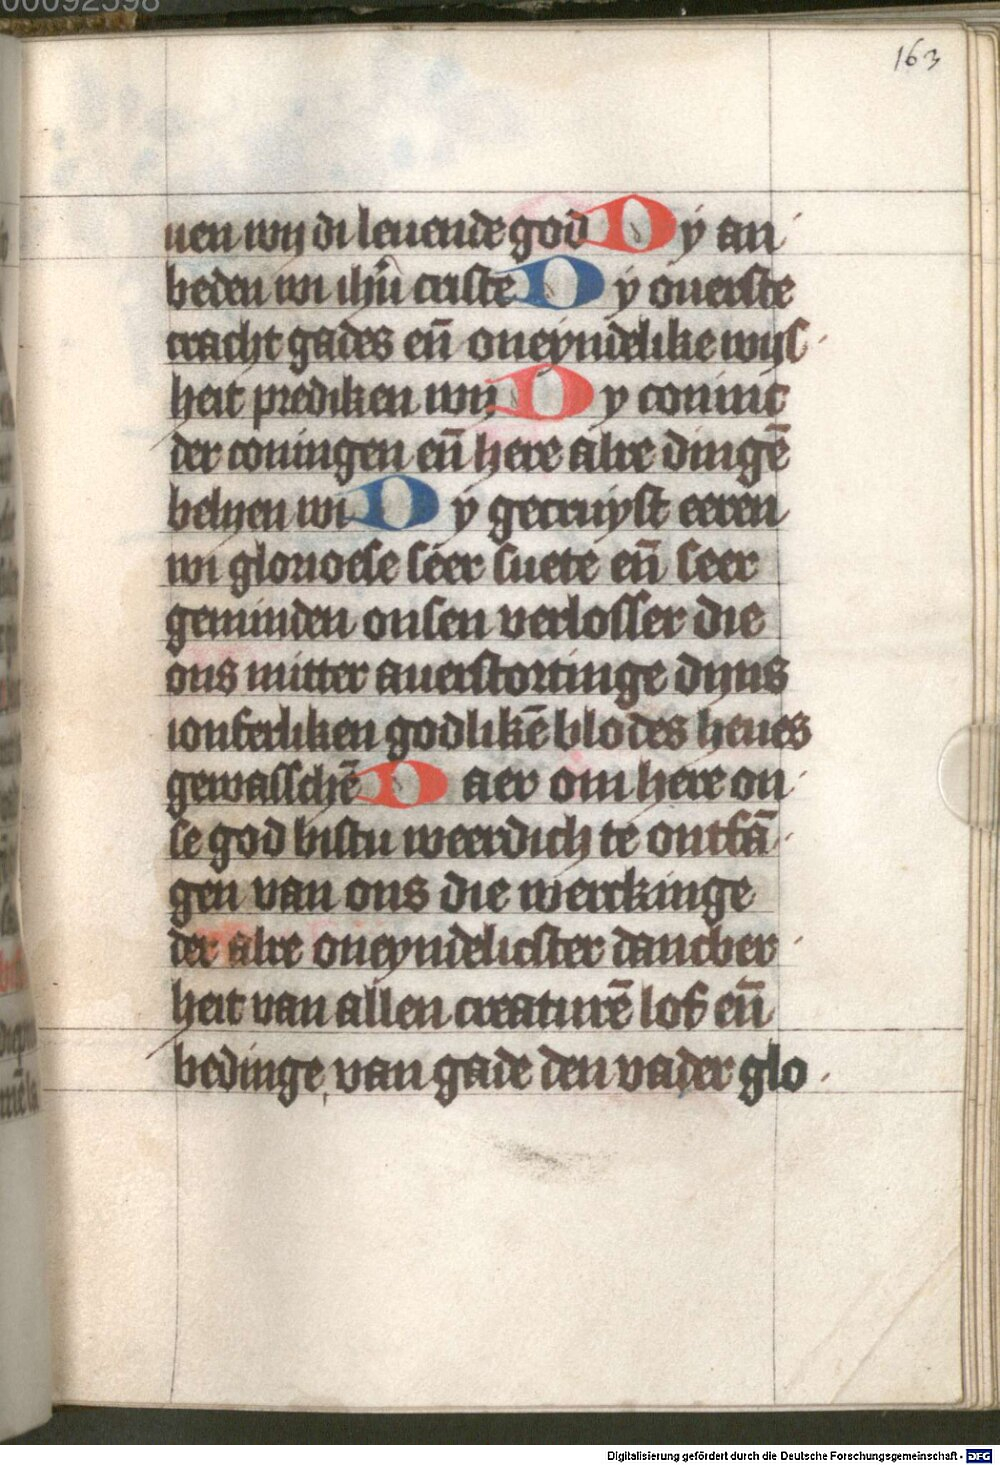 00092598
163
uen wij di leuende god Dy an
beden wi ihū criste Dy ouerste
cracht gades eñ oneyndelike wijs
heit prediken wij Dy coninc
der coningen eñ here alre dingē
belyen wi Dy gecruyst eeren
wi glorioese seer suete eñ seer
geminden onsen verlosser die
ons mitter auerstortinge dijns
ionferliken godlikē blodes heues
gewasschē Daer om here on
se god bistu weerdich te ontfā
gen van ons die werckinge
der alre oneyndelicster dancber
heit van allen creaturē lof eñ
bedinge van gade den vader glo
Digitalisierung gefördert durch die Deutsche Forschungsgemeinschaft - DFG